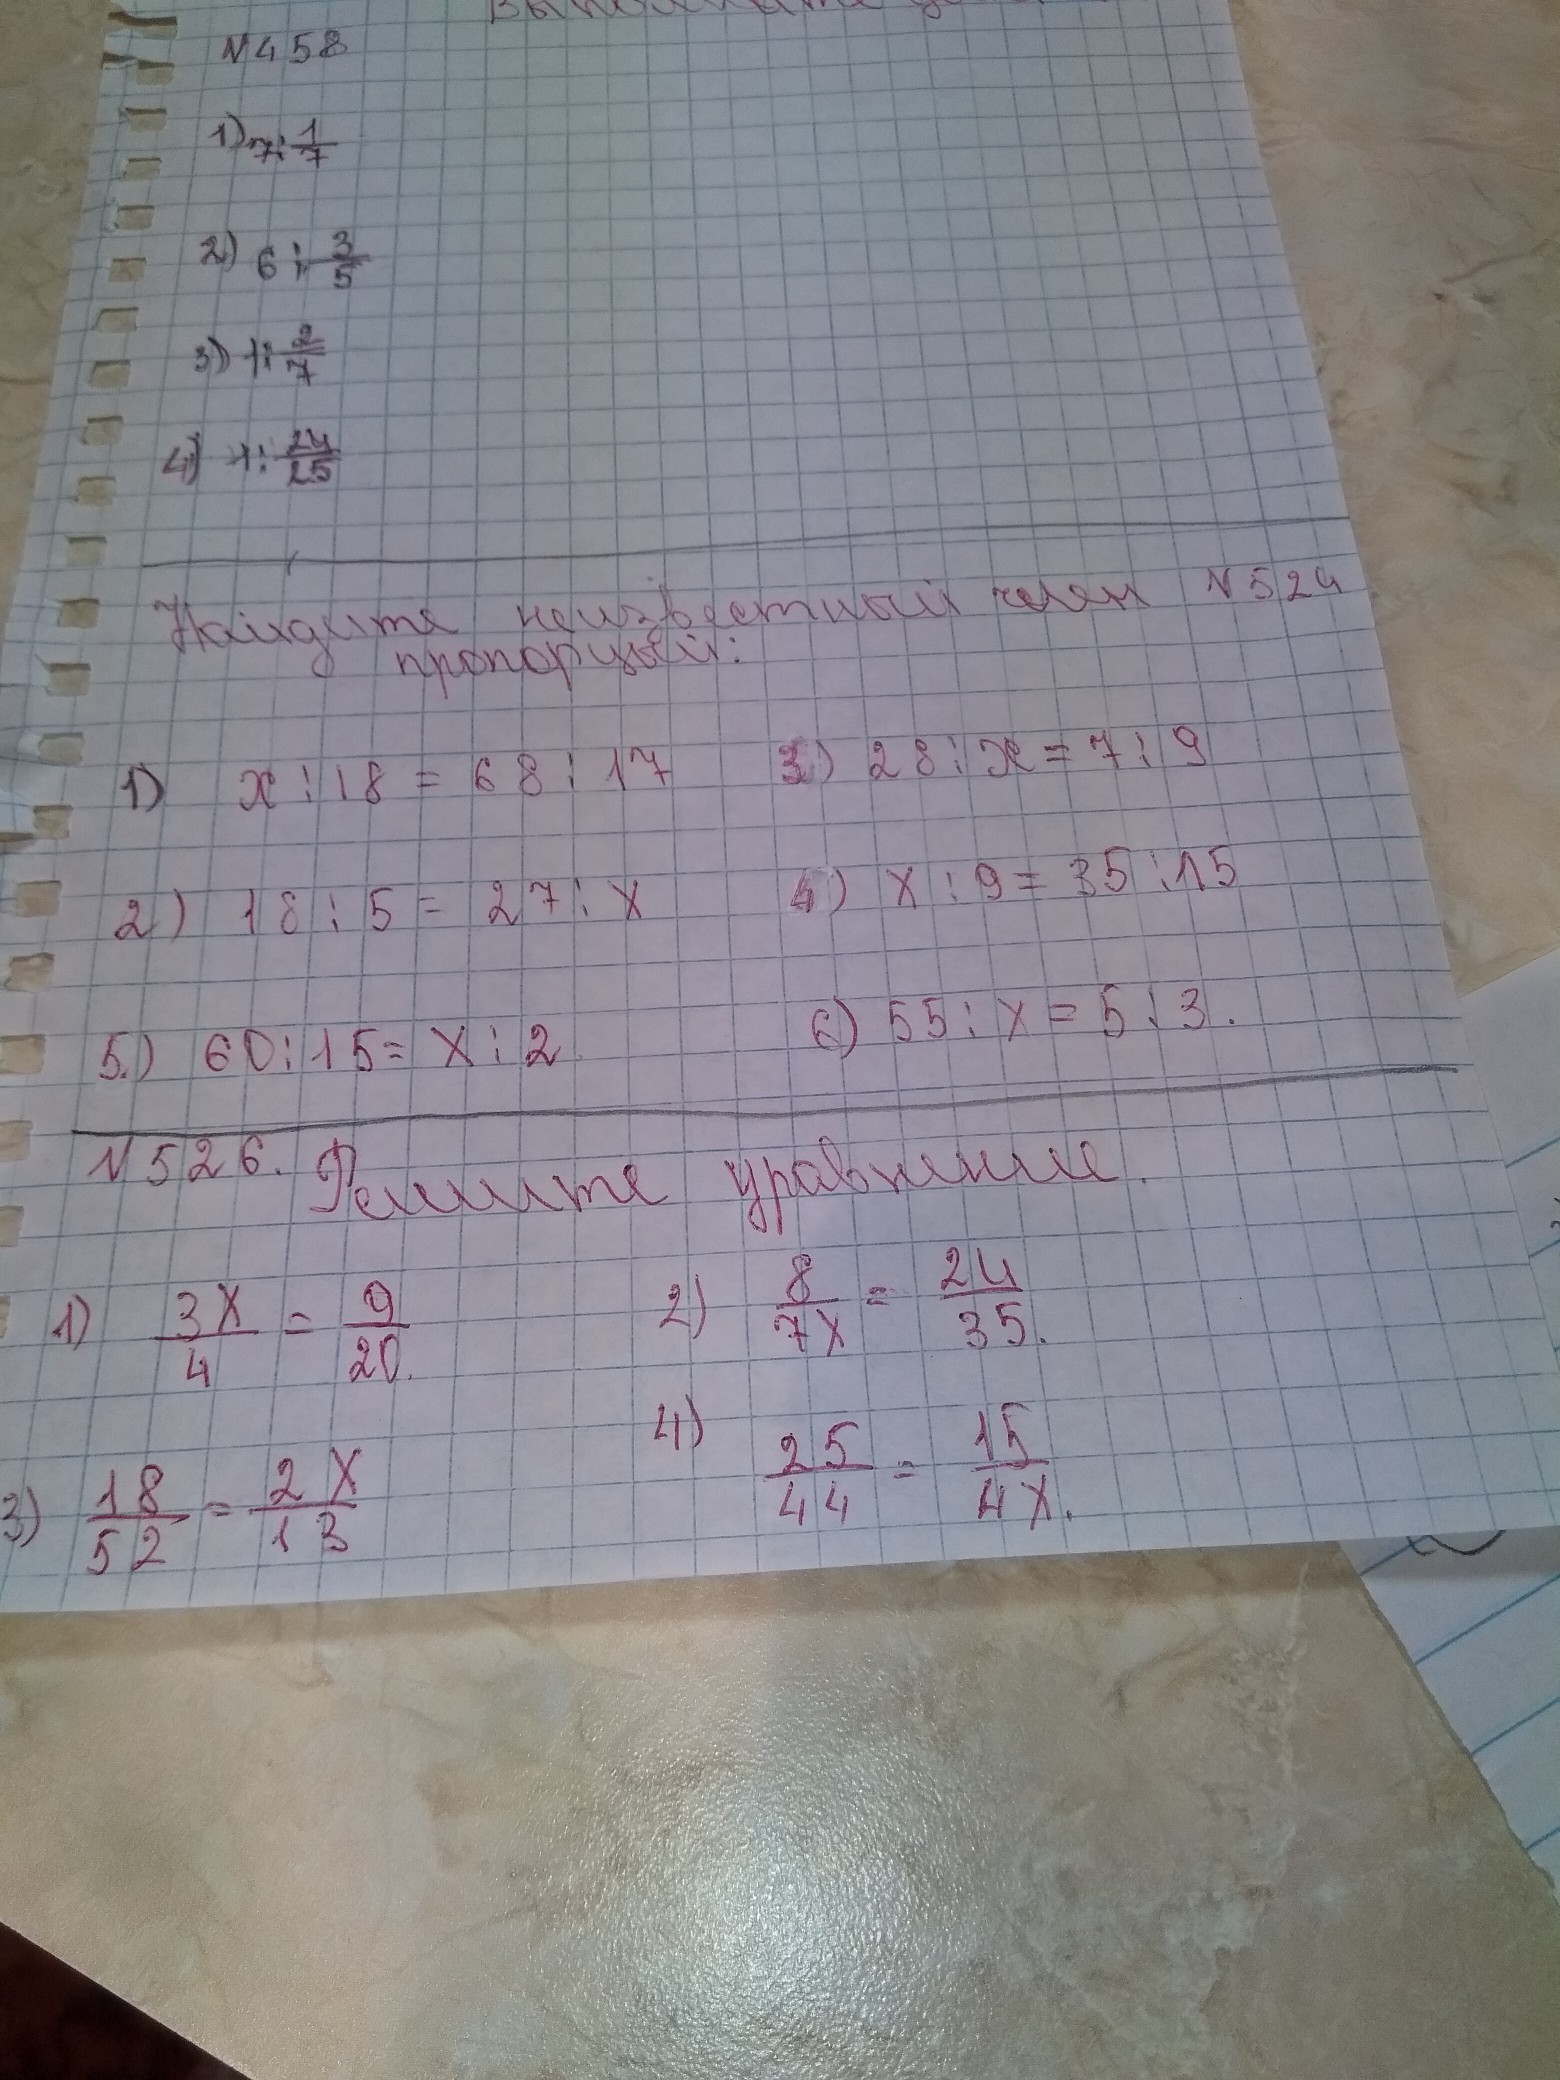 N 458
1) 7 : 1/7
2) 6 : 3/5
3) 1 : 2/7
4) 1 : 24/25
Найдите неизвестный член N 524
пропорций:
1) x : 18 = 68 : 17 3) 28 : x = 7 : 9
2) 18 : 5 = 27 : x 4) x : 9 = 35 : 15
5.) 60 : 15 = x : 2 6) 55 : x = 5 : 3.
N 526. Решите уравнение.
1) 3x/4 = 9/20. 2) 8/7x = 24/35.
3) 18/52 = 2x/13 4) 25/44 = 15/4x.